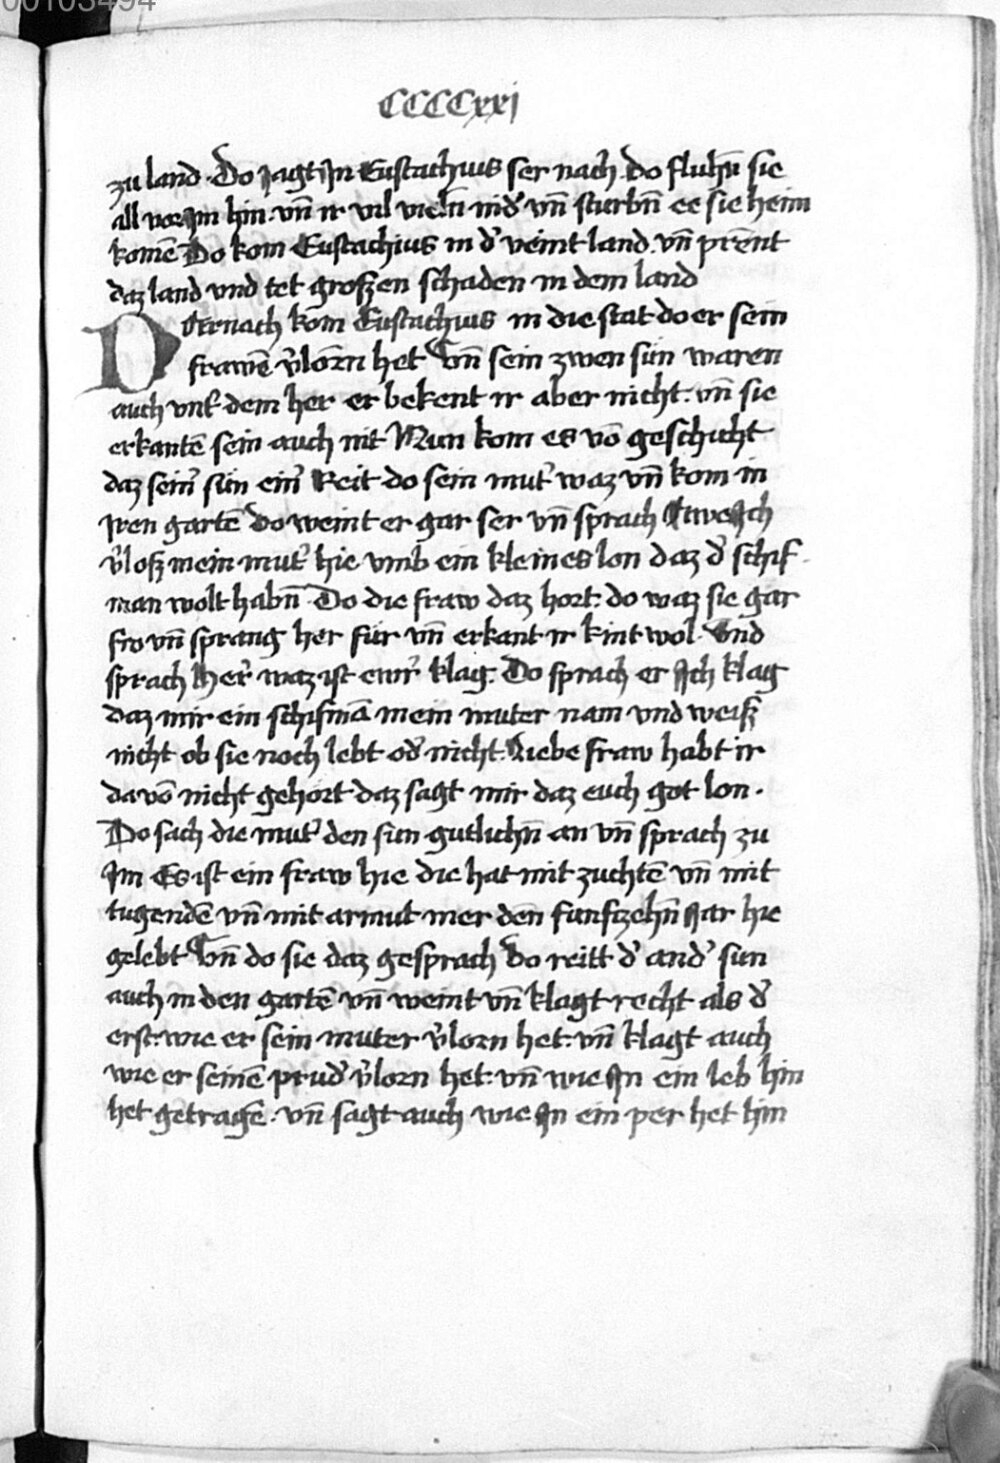 00103494
CCCCxxj
zu land · Do Jagt Jn Eustachius ser nach · do fluhn̄ sie
all vor Jm hin · vn̄ ir vil vieln̄ nid̕ vn̄ sturbn̄ ee sie heim
komē Do kom Eustachius in d̕ veint land · vn̄ prēnt
daz land vnd tet groszen schaden in dem land
Darnach kom Eustachius in die stat do er sein
frawē v̕lorn het Vn̄ sein zwen sün waren
auch vnt̕ dem her er bekent ir aber nicht: vn̄ sie
erkantē sein auch nit Nun kom es vō geschicht
daz sein̕ sün ein̕ Reit do sein mut̕ waz vn̄ kom in
Jren gartē Do weint er gar ser vn̄ sprach Awe Jch
v̕losz mein mut̕ hie vmb ein kleines lon daz d̕ schif
man wolt habn̄ · Do die fraw daz hort: do waz sie gar
fro vn̄ sprang her für vn̄ erkant ir kint wol · Vnd
sprach Her̕ waz ist ewr̕ klag · Do sprach er Jch klag
daz mir ein schifmā mein muter nam vnd weisz
nicht ob sie noch lebt od̕ nicht · Liebe fraw habt ir
da vō nicht gehort daz sagt mir daz euch got lon ·
Do sach die mut̕ den sun gutlichn̄ an vn̄ sprach zu
Jm Es ist ein fraw hie die hat mit zuchtē vn̄ mit
tugendē vn̄ mit armut mer den funfzehn̄ Jar hie
gelebt Vn̄ do sie daz gesprach Do reitt d̕ and̕ sun
auch in den gartē vn̄ weint vn̄ klagt recht als d̕
erst: wie er sein muter v̕lorn het: vn̄ klagt auch
wie er seinē prud̕ v̕lorn het: vn̄ wie Jn ein leb hin
het getragē · vn̄ sagt auch wie Jn ein per het hin